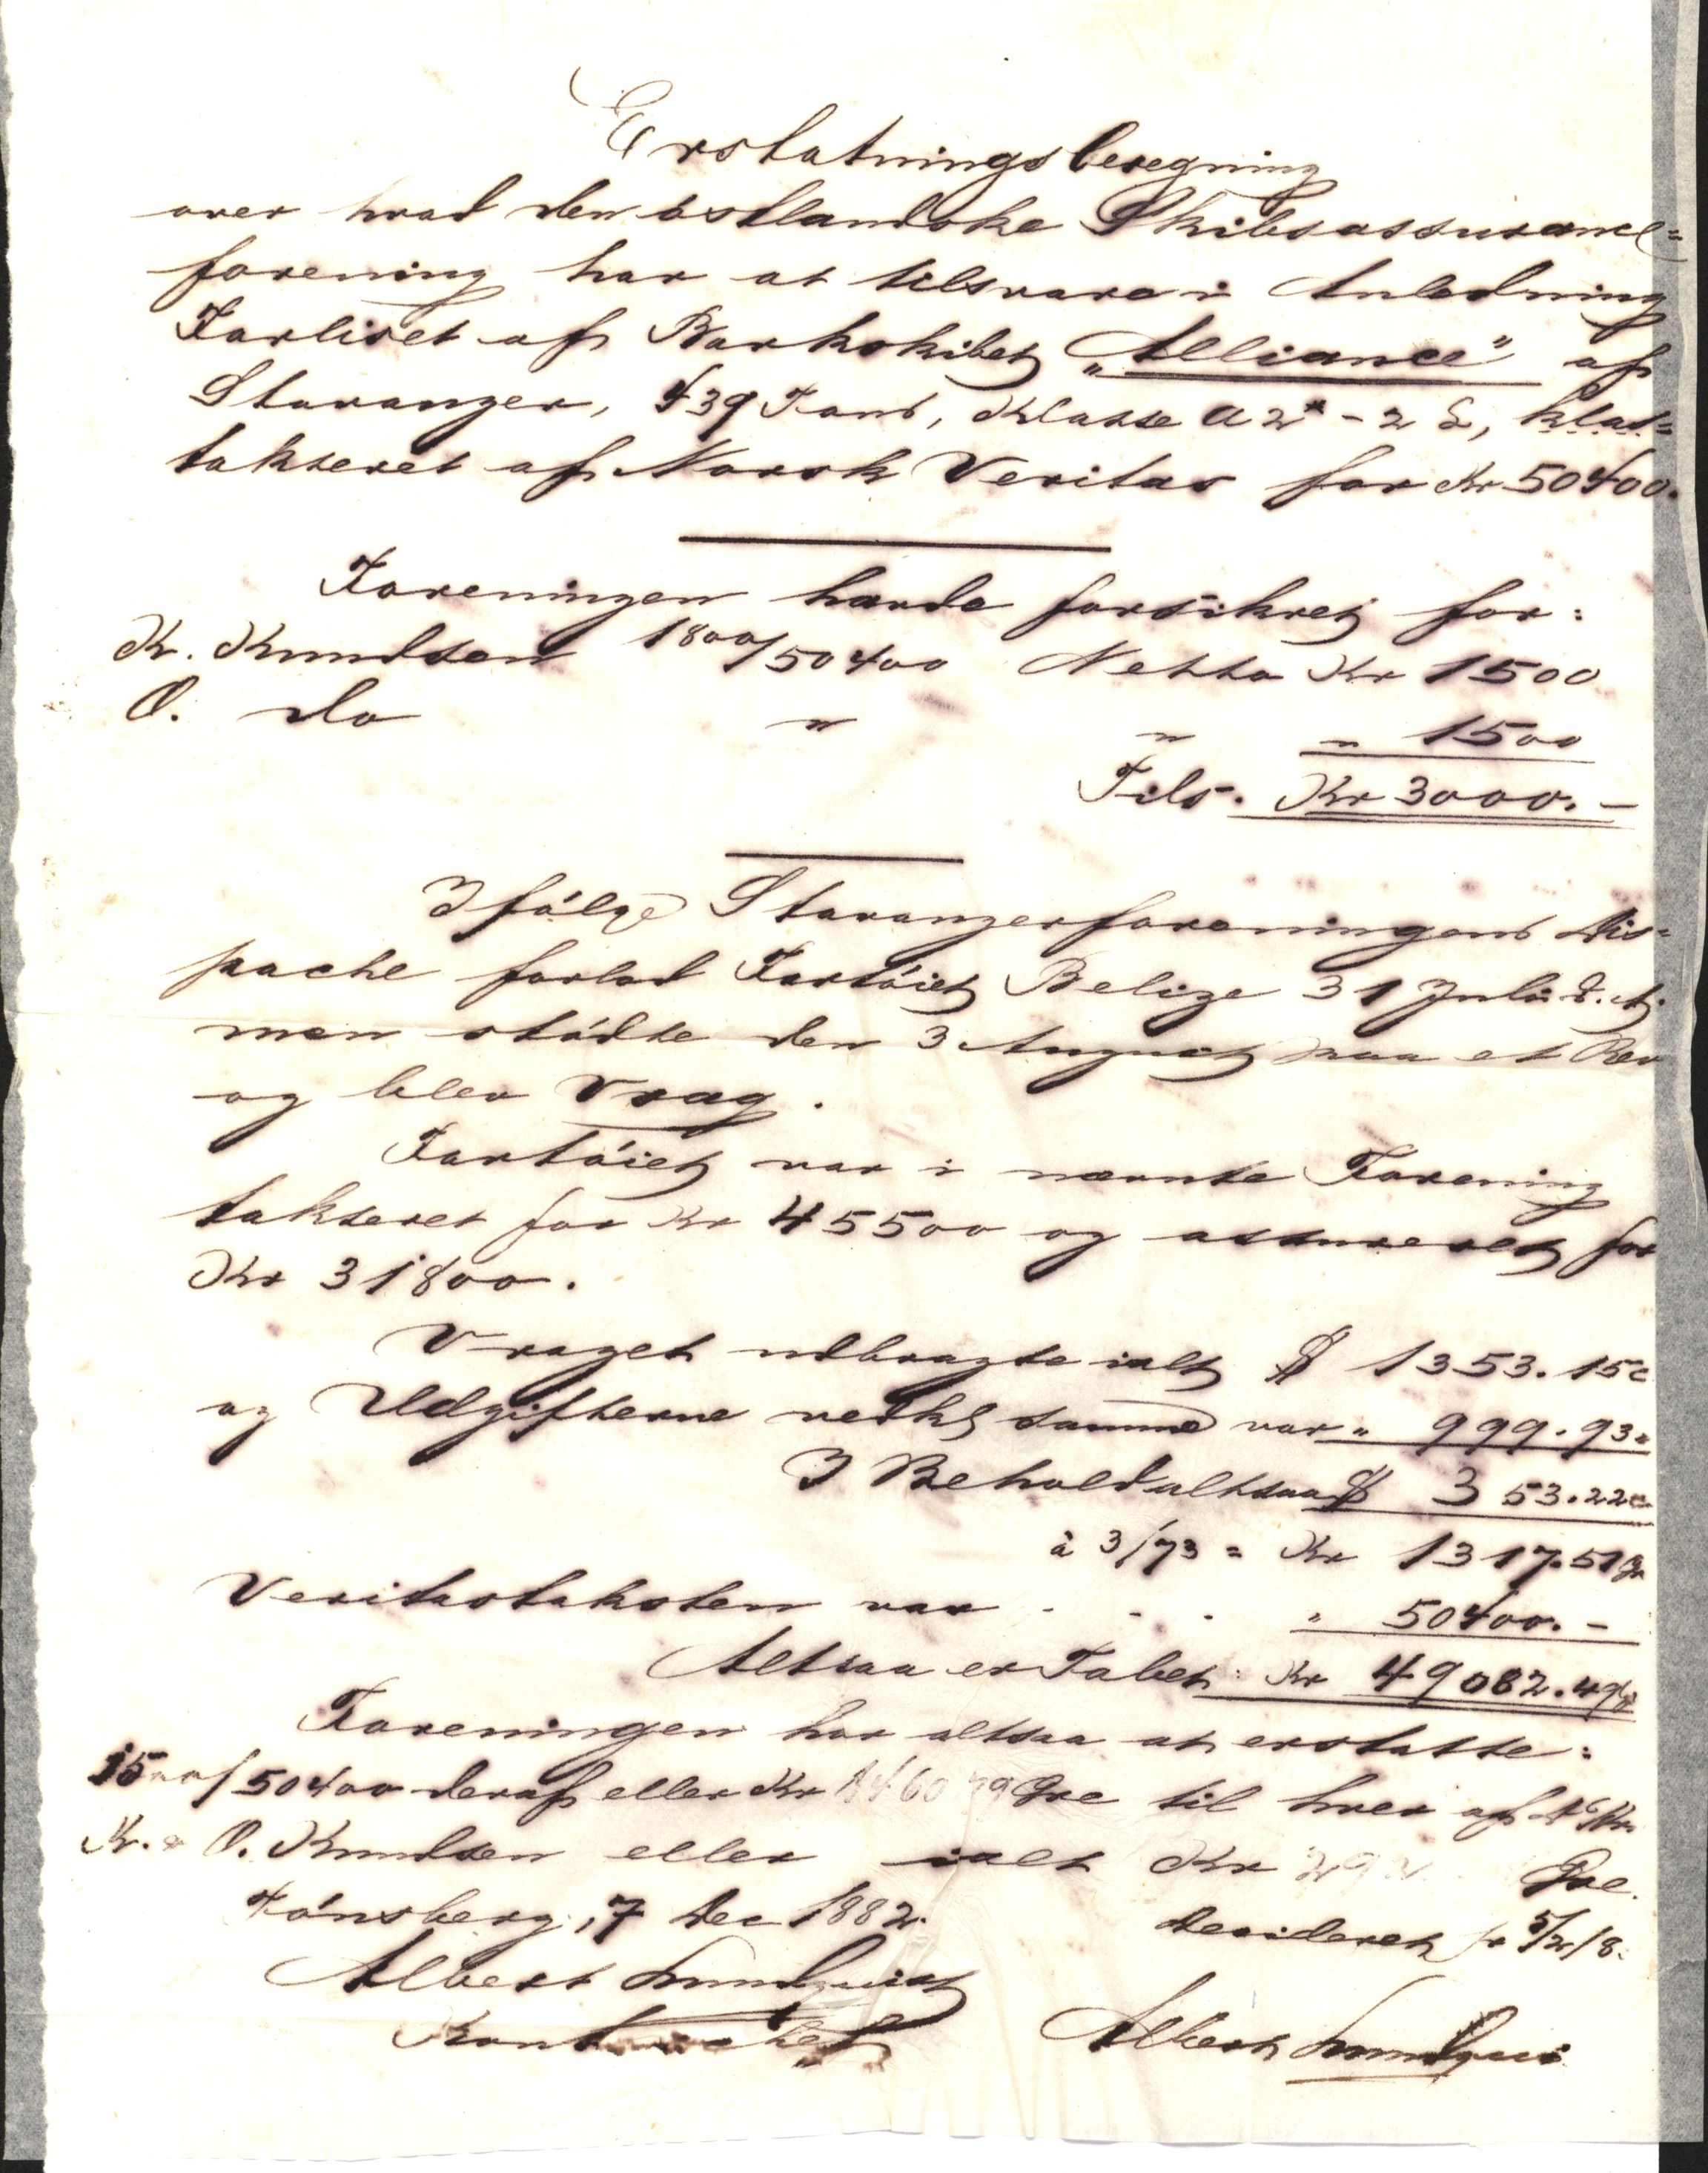 Erstatningsberegning
over hvad den østlandske Skibsassurance=
forening har at tilsvare i Anledning
Forliset af Barkskibet „Alliance" af
Stavanger, 439 Tons, Klasse A 2* - 2 L, klas=
takseret af Norsk Veritas for Kr 50400.
Foreningen havde forsikret for:
K. Knudsen 1800/50400 Netto Kr 1500
O. do " " " 1500
Tils. Kr 3000. -
Ifølge Stavangerforeningens Dis=
pache forlod Fartøiet Belize 31 Juli d. A.
men stødte den 3 August paa et Rev
og blev Vrag.
Fartøiet var i nævnte Forening
takseret for Kr 45500 og assureret for
Kr 31800.
Vraget udbragte ialt $ 1353.15c
og Udgifterne vedk. samme var " 999.93 "
I Behold altsaa $ 353.22c
à 3/73 = Kr 1317.51 Ør
Veritastaksten var - - - " 50400. -
Altsaa er Tabet: Kr 49082.49 Ør
Foreningen har altsaa at erstatte:
1500/50400 deraf eller Kr 1460 79 Øre til hver af
K. & O. Knudsen eller ialt Kr 292 Øre.
Tønsberg, 7 Dec 1882.
Decideret pr 5/2/8.
Albert Lundquist
Kontorchef
Albert Lundquis